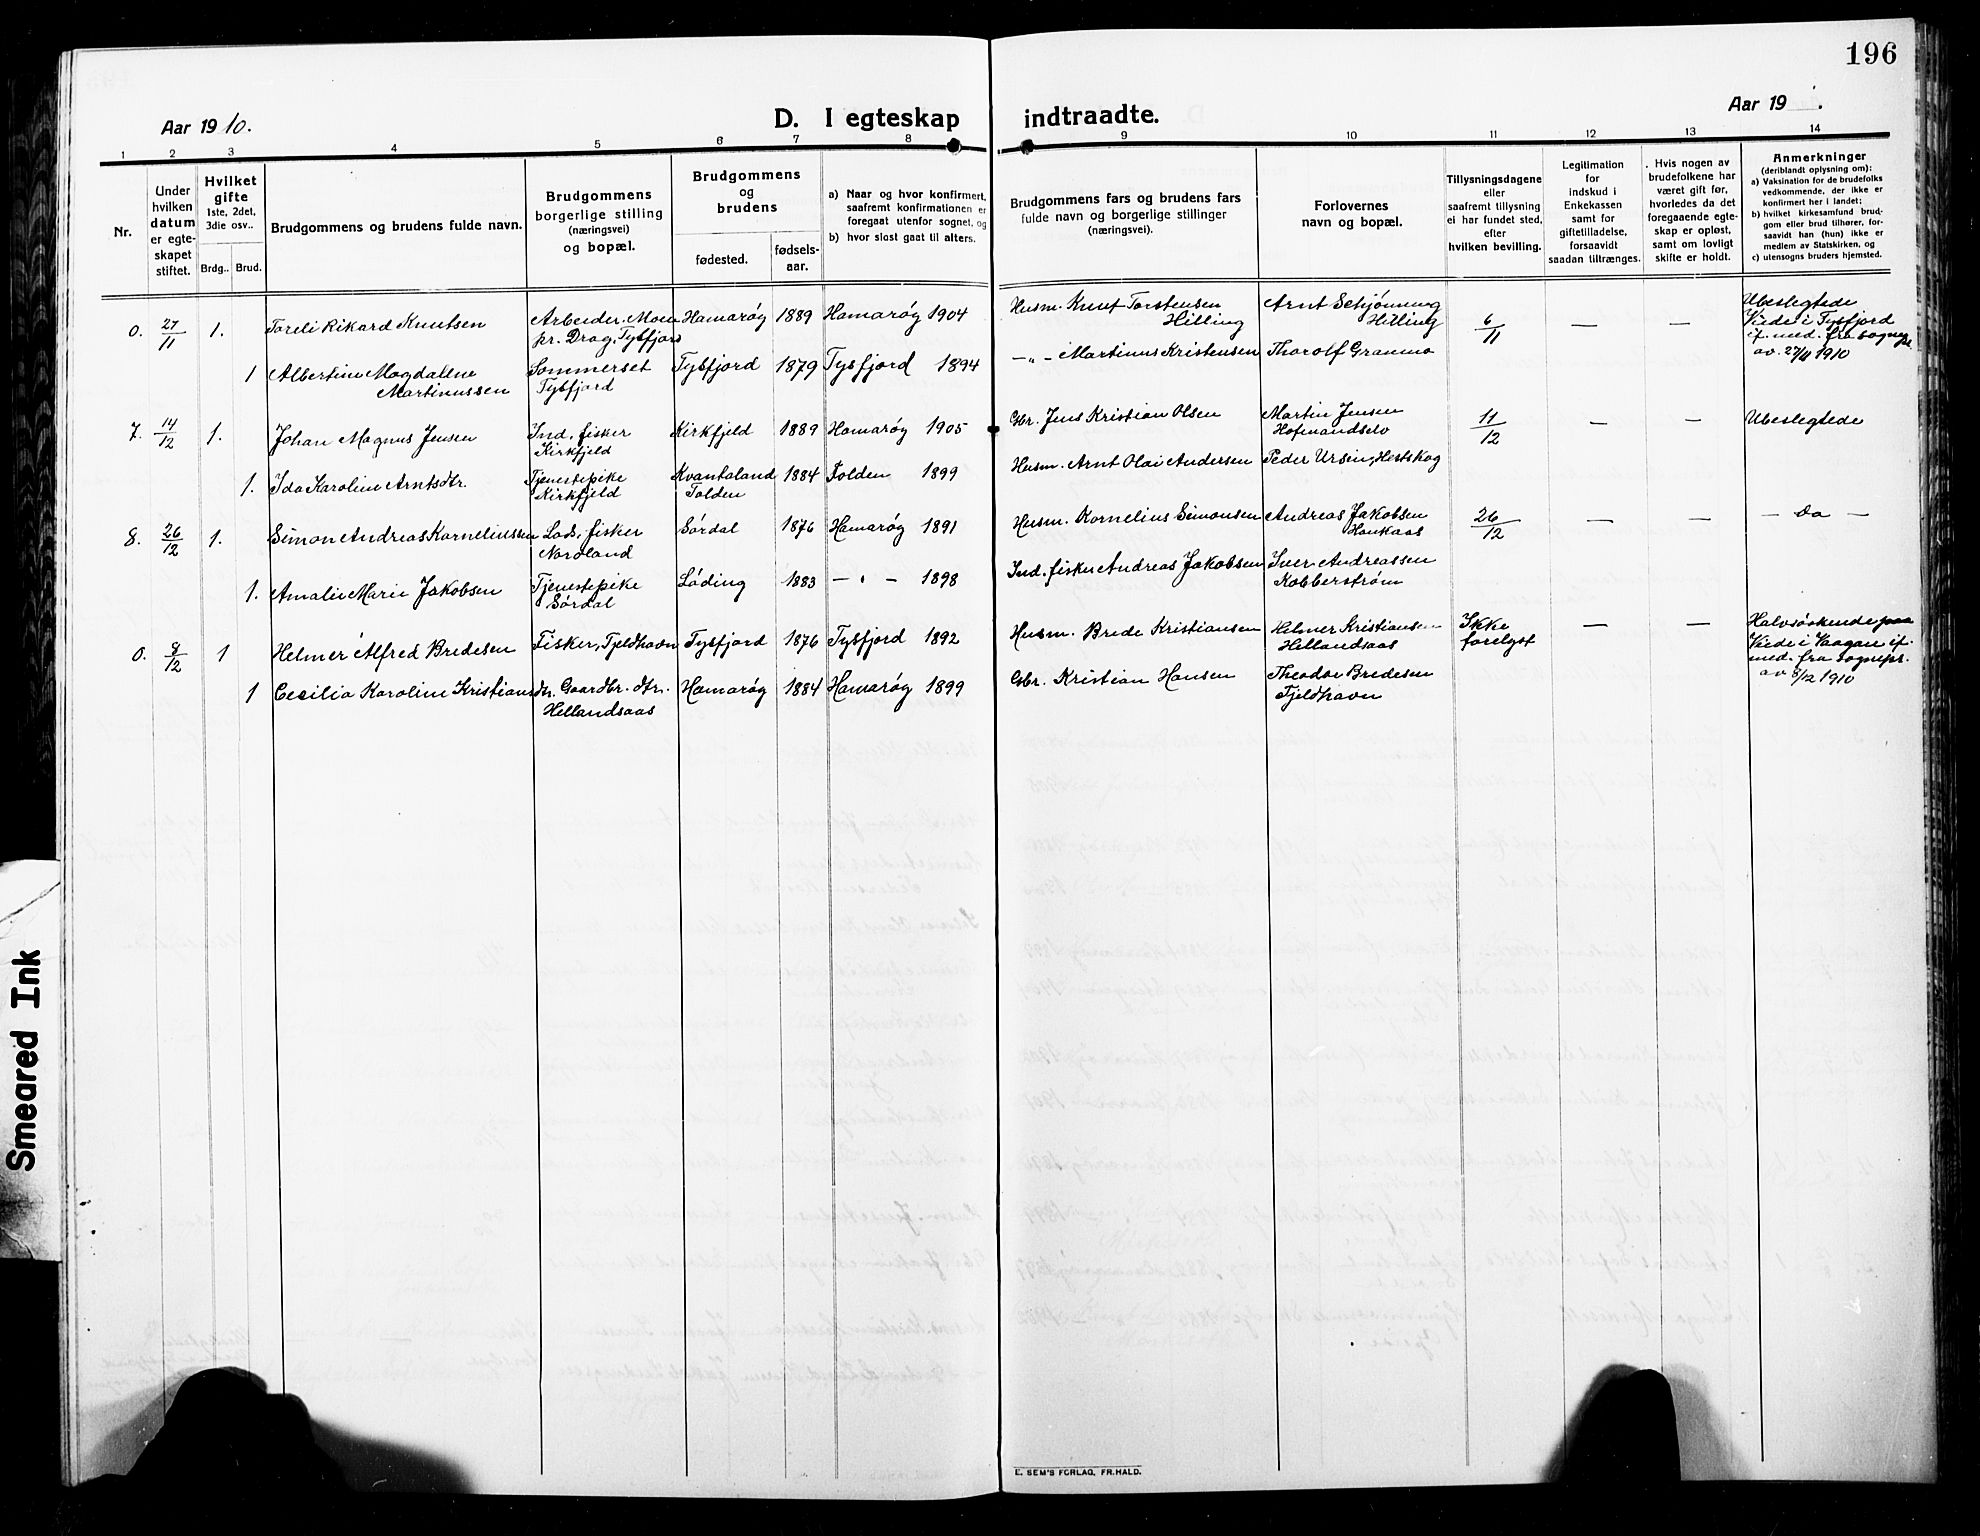 196
Aar 1910.
D. I egteskap indtraadte.
Aar 19 .
1 2 3 4 5 6 7 8 9 10 11 12 13 14
Nr.
Under hvilken datum er egteskapet stiftet.
Hvilket gifte
1ste, 2det, 3die osv..
Brdg.. Brud.
Brudgommens og brudens fulde navn.
Brudgommens borgerlige stilling (næringsvei) og bopæl.
Brudgommens og brudens
fødested.
fødsels-aar.
a) Naar og hvor konfirmert, saafremt konfirmationen er foregaat utenfor sognet, og
b) hvor sløst gaat til alters.
Brudgommens fars og brudens fars fulde navn og borgerlige stillinger (næringsvei).
Forlovernes navn og bopæl.
Tillysningsdagene eller saafremt tillysning ei har fundet sted, efter hvilken bevilling.
Legitimation for indskud i Enkekassen samt for giftetilladelse, forsaavidt saadan tiltrænges.
Hvis nogen av brudefolkene har været gift før, hvorledes da det foregaaende egteskap er opløst, samt om lovligt skifte er holdt.
Anmerkninger
(deriblandt oplysning om):
a) Vaksination for de brudefolks vedkommende, der ikke er konfirmert her i landet;
b) hvilket kirkesamfund brudgom eller brud tilhører, forsaavidt han (hun) ikke er medlem av Statskirken, og
c) utensogns bruders hjemsted.
0. 27/11 1. Toreli Rikard Knutsen Arbeider. Moen pr. Drag, Tysfjord Hamarøy 1889 Hamarøy 1904 Husm. Knut Torstensen Hilling Arnt Schjønning Hilling 6/11 — — Ubeslegtede Viede i Tysfjord if. med. fra sognepr. av 27/11 1910
1 Albertine Magdalene Martinussen Sommerset Tysfjord Tysfjord 1879 Tysfjord 1894 — „ — Martinus Kristensen Thorolf Grammo
7. 14/12 1. Johan Magnus Jensen Ind, fisker Kirkfjeld Kirkfjeld 1889 Hamarøy 1905 Gbr. Jens Kristian Olsen Martin Jensen 11/12 — — Ubeslegtede
1. Ida Karoline Arntsdtr. Tjenestepike Kirkfjeld Kvantoland Folden 1884 Folden 1899 Husm. Arnt Olai Andersen Peder Ursin, Hestskog
8. 26/12 1. Simon Andreas Korneliussen Lods, fisker Nordland Sørdal 1876 Hamarøy 1891 Husm. Kornelius Simonsen Andreas Jakobsen Haukaas 26/12 — — — Do —
1. Amalie Marie Jakobsen Tjenestepike Sørdal Løding 1883 — „ — 1898 Ind. fisker Andreas Jakobsen Iver Andreassen Kobberstrøm
0. 8/12 1 Helmer Alfred Bredesen Fisker, Tjeldhavn Tysfjord 1876 Tysfjord 1892 Husm. Brede Kristiansen Helmer Kristiansen Hellandsaas Ikke forelyst — — Halvsøskende paa Viede i Vaagan if. med. fra sognepr. av 5/12 1910
1 Cecilia Karoline Kristiansdtr. Gaardbr. dtr. Hellandsaas Hamarøy 1884 Hamarøy 1899 Gbr. Kristian Hansen Theodor Bredesen Tjeldhavn
E. SEM'S FORLAG, FR.HALD.
Smeared Ink